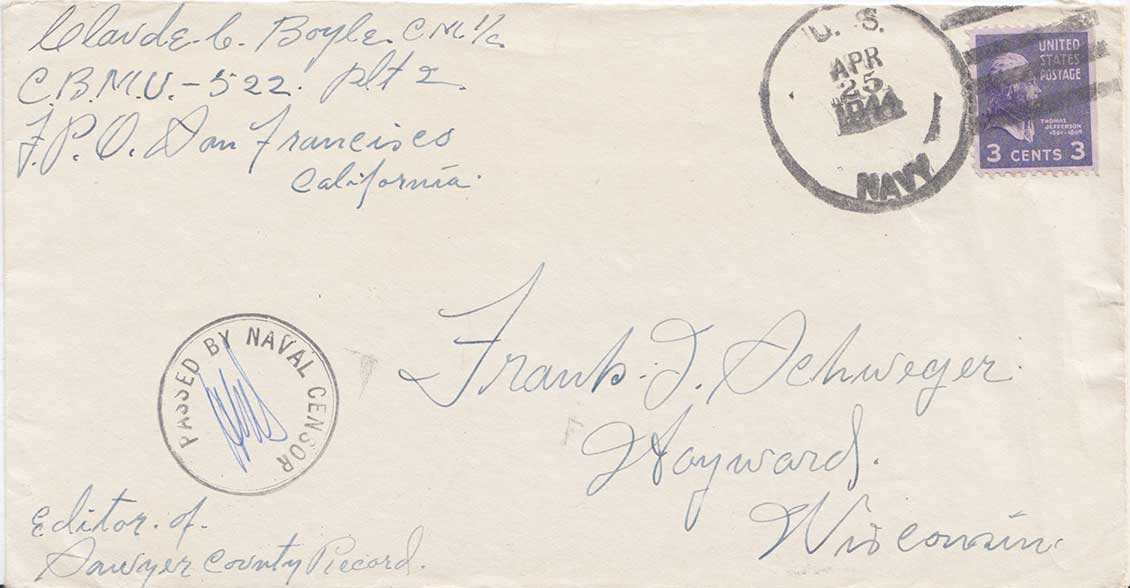 Claude C. Boyle C.M. 1/c
C.B.M.U.-522. Plt 2.
F.P.O. San Francisco
California.
U. S.
APR
25
1944
NAVY
UNITED
STATES
POSTAGE
THOMAS
JEFFERSON
1801-1809
3 CENTS 3
PASSED BY NAVAL CENSOR
Frank. J. Schweger.
Hayward.
Wisconsin.
Editor. of.
Sawyer County Record.